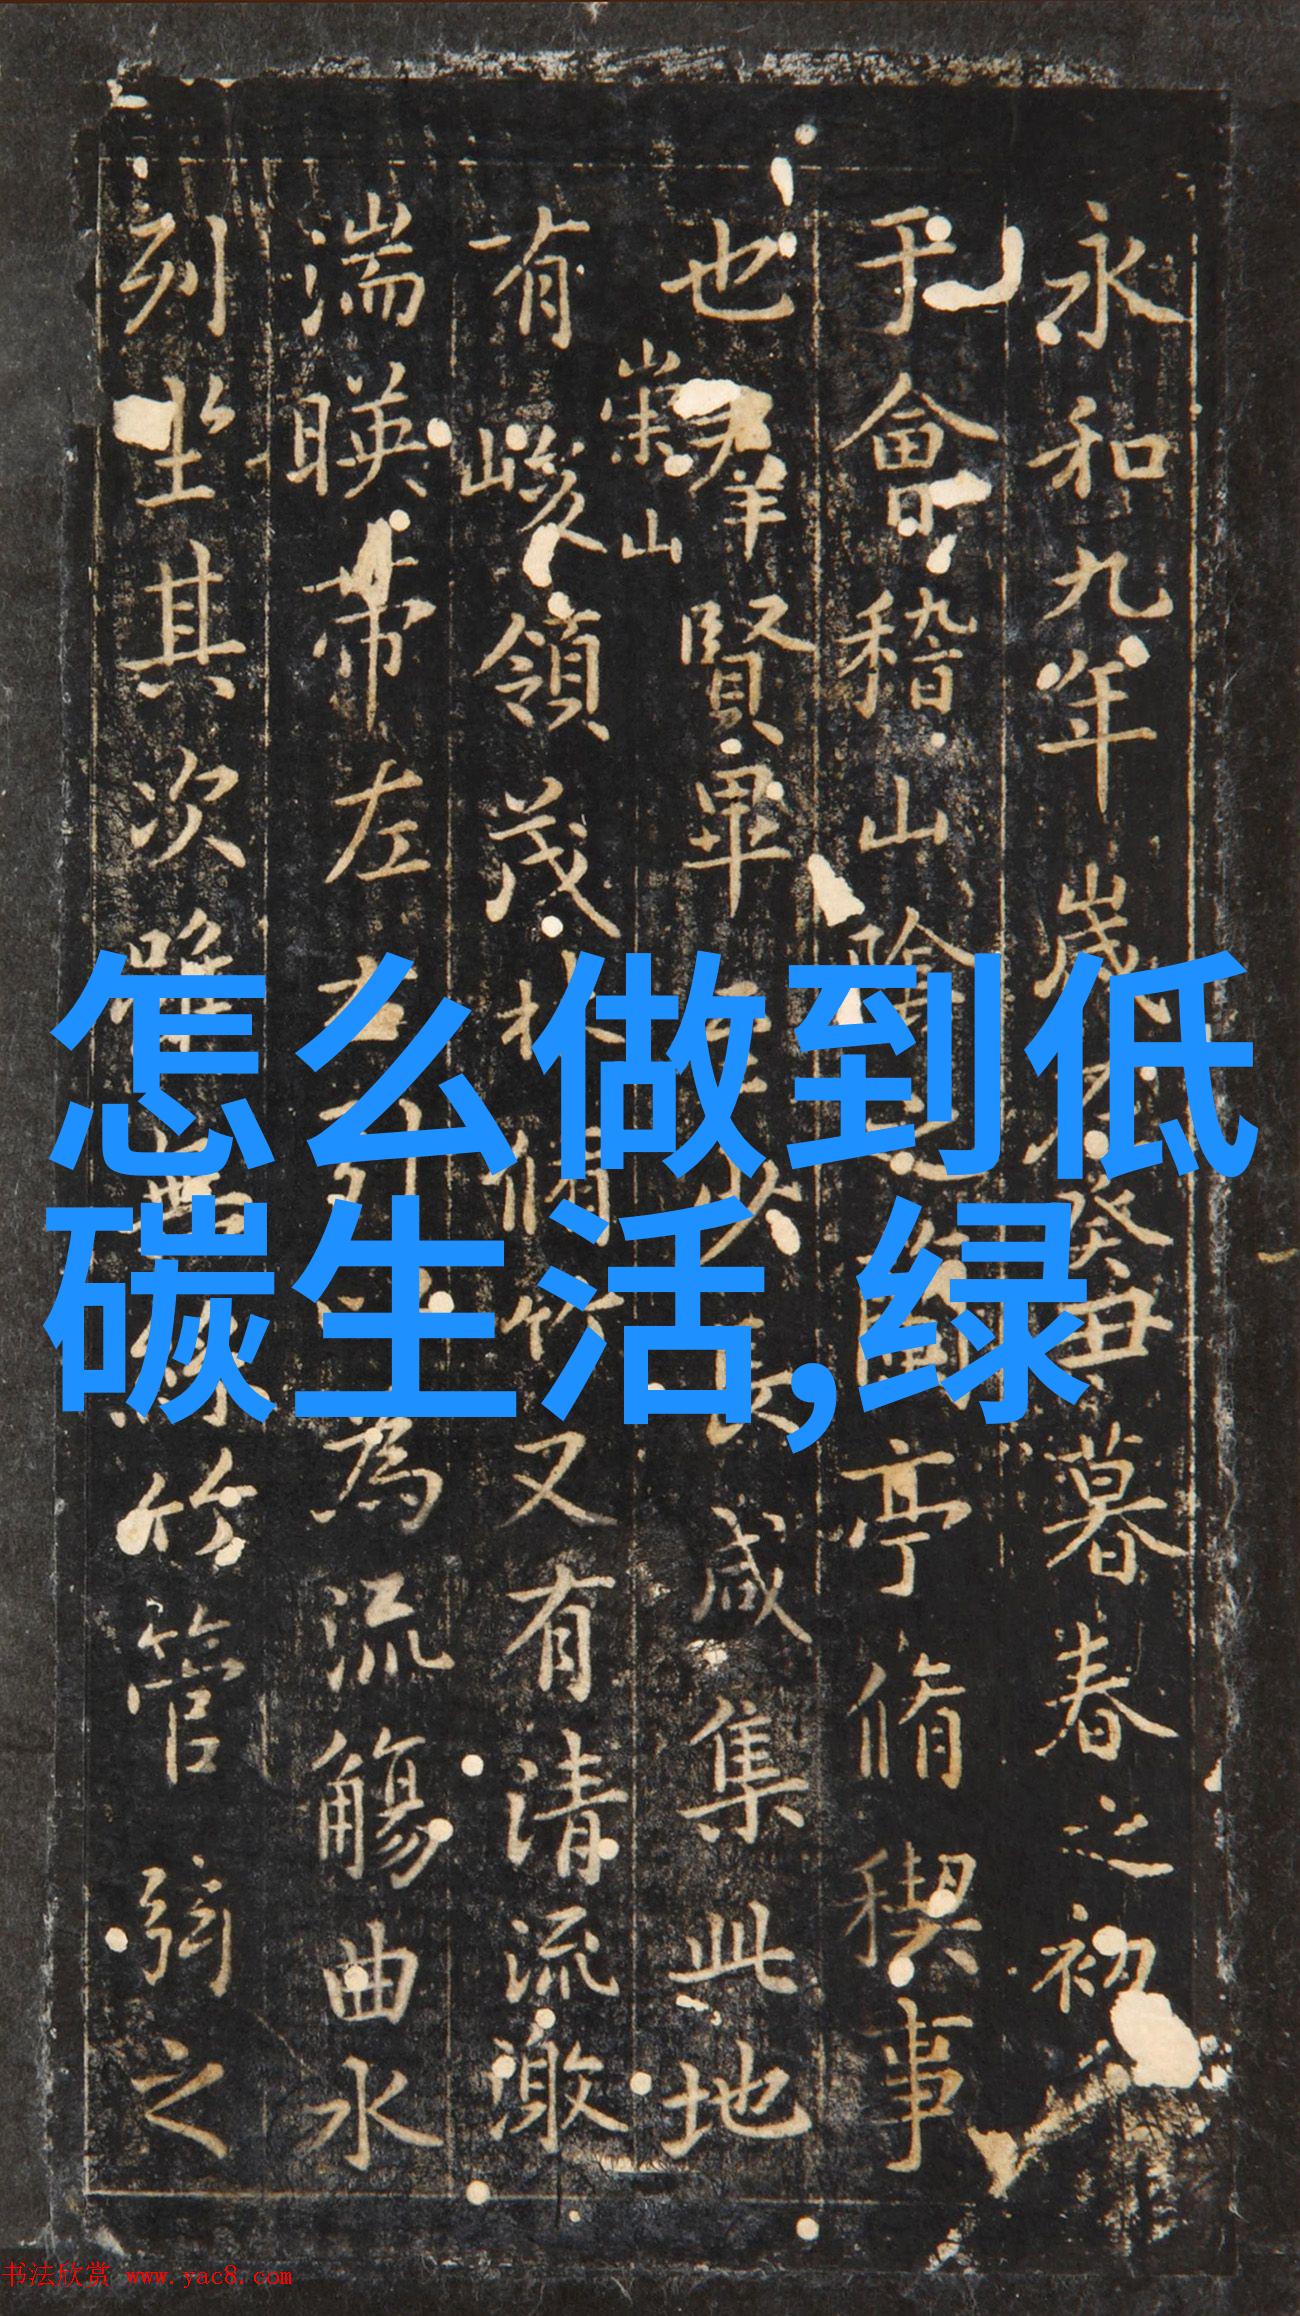 永和九年歲在癸丑暮春之初
于會稽山陰之蘭亭脩稧事
也羣賢畢至少長咸集此地
有崇山峻領茂林脩竹又有清流激
湍暎帶左右引以為流觴曲水
列坐其次雖無絲竹管弦之
怎么做到低
碳生活,绿
书法欣赏 www.yac8.com